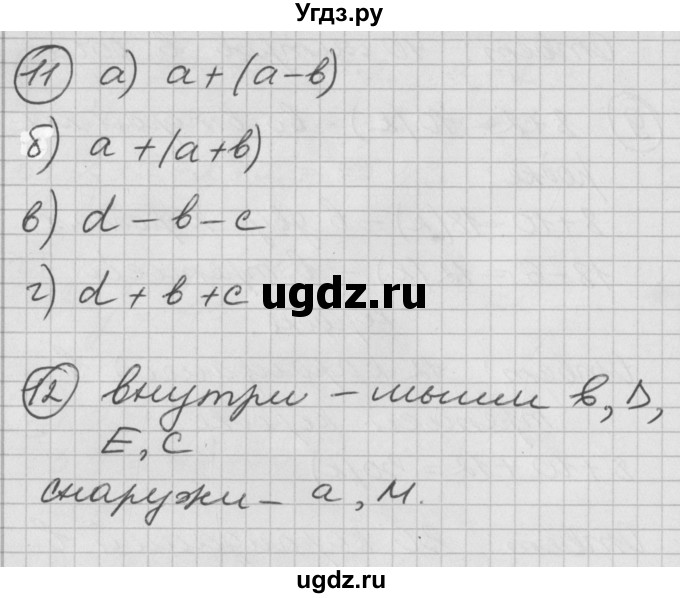 Угдз.ру
11 а) a + (a - в)
б) a + (a + в)
в) d - в - c
г) d + в + c
ugdz.ru
12 внутри - мыши в, D,
E, C
снаружи - a, M.
ugdz.ru